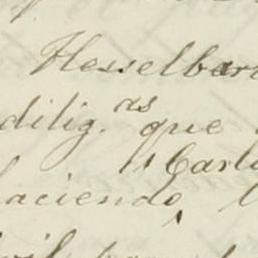 Hesselbar
dilig.as que
"Carl
aciendo